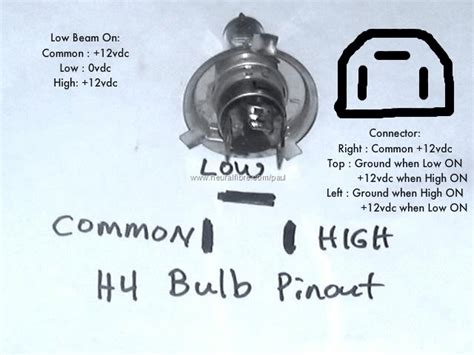 Low Beam On:
Common : +12vdc
Low : 0vdc
High: +12vdc
Connector:
Right : Common +12vdc
Top : Ground when Low ON
+12vdc when High ON
Left : Ground when High ON
+12vdc when Low ON
LOW
www.neuralfibre.com/paul
COMMON
HIGH
H4 Bulb Pinout